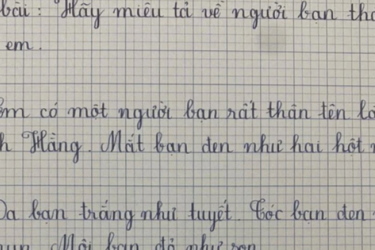 bài: Hãy miêu tả về người bạn thâ
em.
Em có một người bạn rất thân tên là
h Hằng. Mắt bạn đen như hai hột n
Da bạn trắng như tuyết. Tóc bạn đen
mun. Môi bạn đỏ như son